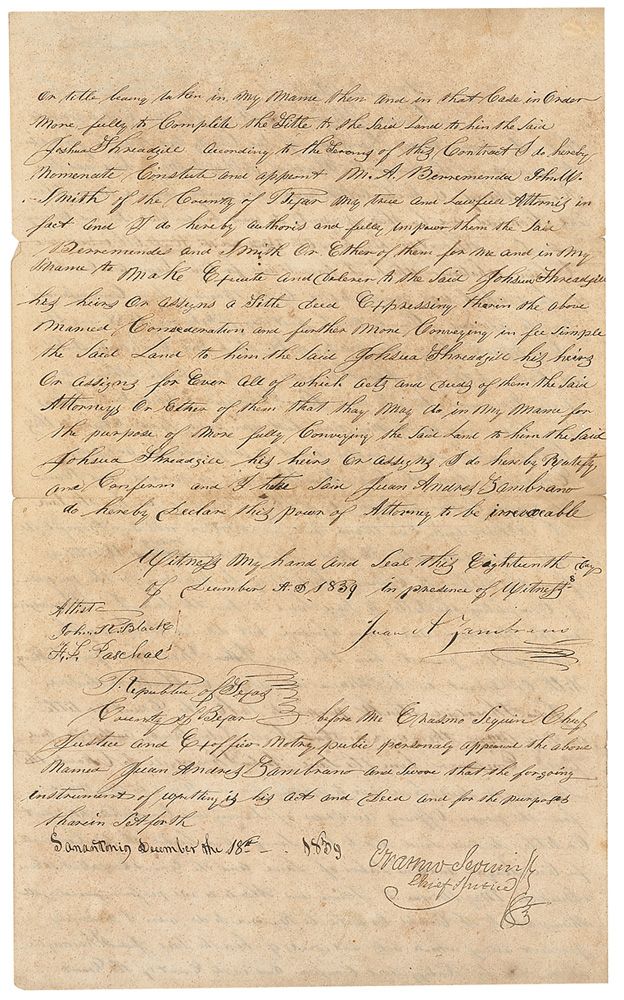 Or title being taken in my Name then and in that Case in Order
More fully to Complete the Title to the Said Land to him the Said
Joshua Threadgill According to the Terms of this Contract I do hereby
Nomenate, Constute and appoint M. A. Berremenda John W.
Smith of the County of Bejar My true and Lawfull Attorneys in
fact and I do hereby authoris and fully impour them the Said
Berremendes and Smith Or Ether of them for me and in My
Name to Make Execute and Delever to the Said Johsua Threadgill
his heirs Or assigns a Title Deed Expressing therin the above
Named Consederation and further More Conveying in fee Simple
the Said Land to him the Said Johsua Threadgill his heirs
Or Assigns for Ever All of which acts and deeds of them the Said
Attorneys Or Ether of them that thay May do in My Name for
the purpose of More fully Conveying the Said Land to him the Said
Johsua Threadgill his heirs Or assigns I do hereby Ratefy
and Conferm and I the Said Juan Andres Zambrano
do hereby Declare this powr of Attorney to be irrevocable
Witness My hand and Seal this Eighteenth day
of December A.D. 1839 In presence of Witness
Attist
John R Black
F. L. Paschal
Juan A Zambrano
Republic of Texas
County of Bejar before Me Erasmo Seguin Chief
Justice and Exofficio Notry public personaly appeard the above
Named Juan Andres Zambrano and Swore that the forgoing
instrument of writting is his act and Deed and for the purposes
tharein Set forth
Sanantonio December the 18th 1839
Erasmo Seguin
Chief Justice